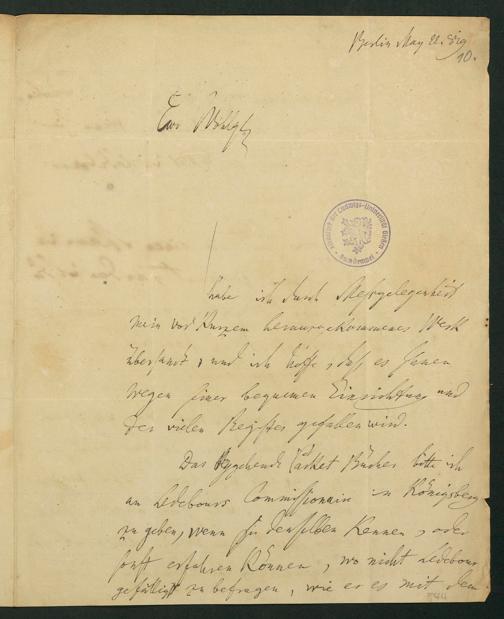 Berlin May 22.
10.
Ew. Wohlgb
habe ich durch Meßgelegenheit
mein vor Kurzem herausgekommenes Werk
übersandt, und ich hoffe, daß es Ihnen
wegen seiner bequemen Einrichtung und
der vielen Register gefallen wird.
Das Packet Bücher bitte ich
an Ledebours Commissionair in Königsberg
zu geben, wenn Sie denselben kennen, oder
sonst erfahren können, wo nicht Ledebour
gefälligst zu befragen, wie er es mit dem